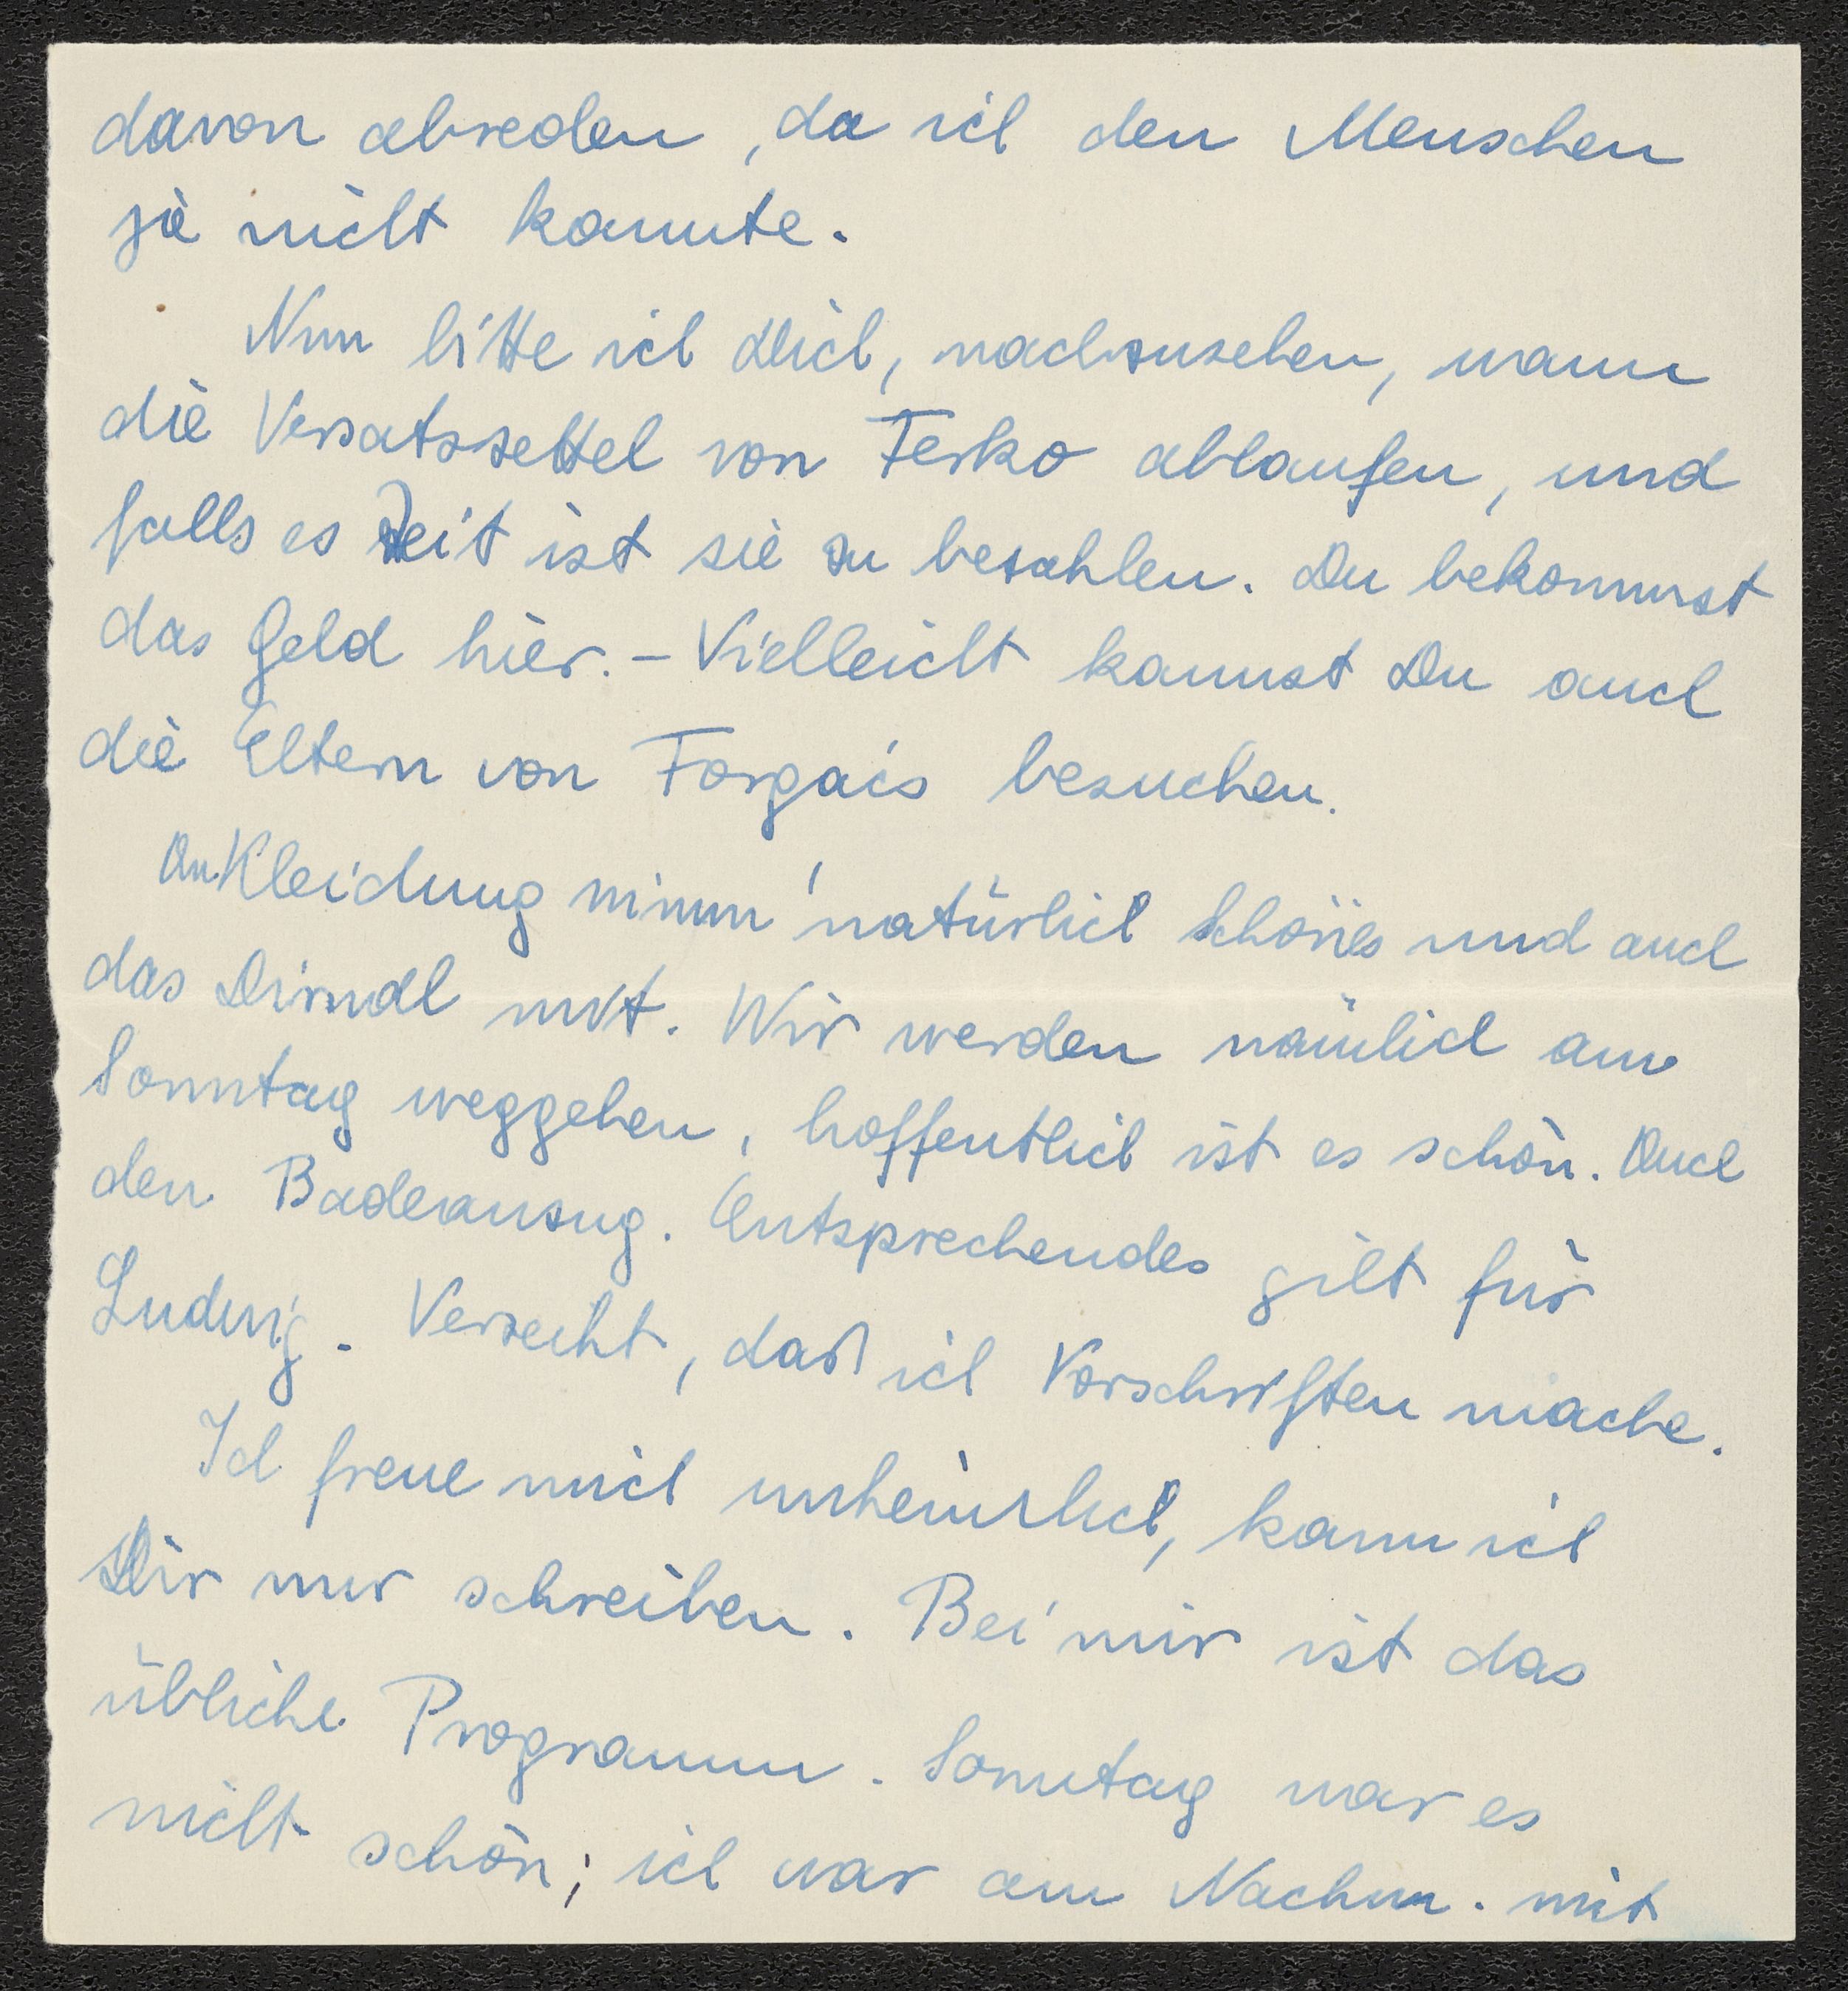 davon abreden, da ich den Menschen
ja nicht kannte.
Nun bitte ich Dich, nachzusehen, wann
die Versatzzettel von Ferko ablaufen, und
falls es Zeit ist sie zu bezahlen. Du bekommst
das Geld hier. – Vielleicht kannst Du auch
die Eltern von Forgács besuchen.
An Kleidung nimm natürlich schönes und auch
das Dirndl mit. Wir werden nämlich am
Sonntag weggehen, hoffentlich ist es schön. Auch
den Badeanzug. Entsprechendes gilt für
Ludwig. Verzeiht, daß ich Vorschriften mache.
Ich freue mich unheimlich, kann ich
Dir nur schreiben. Bei mir ist das
übliche Programm. Sonntag war es
nicht schön; ich war am Nachm. mit